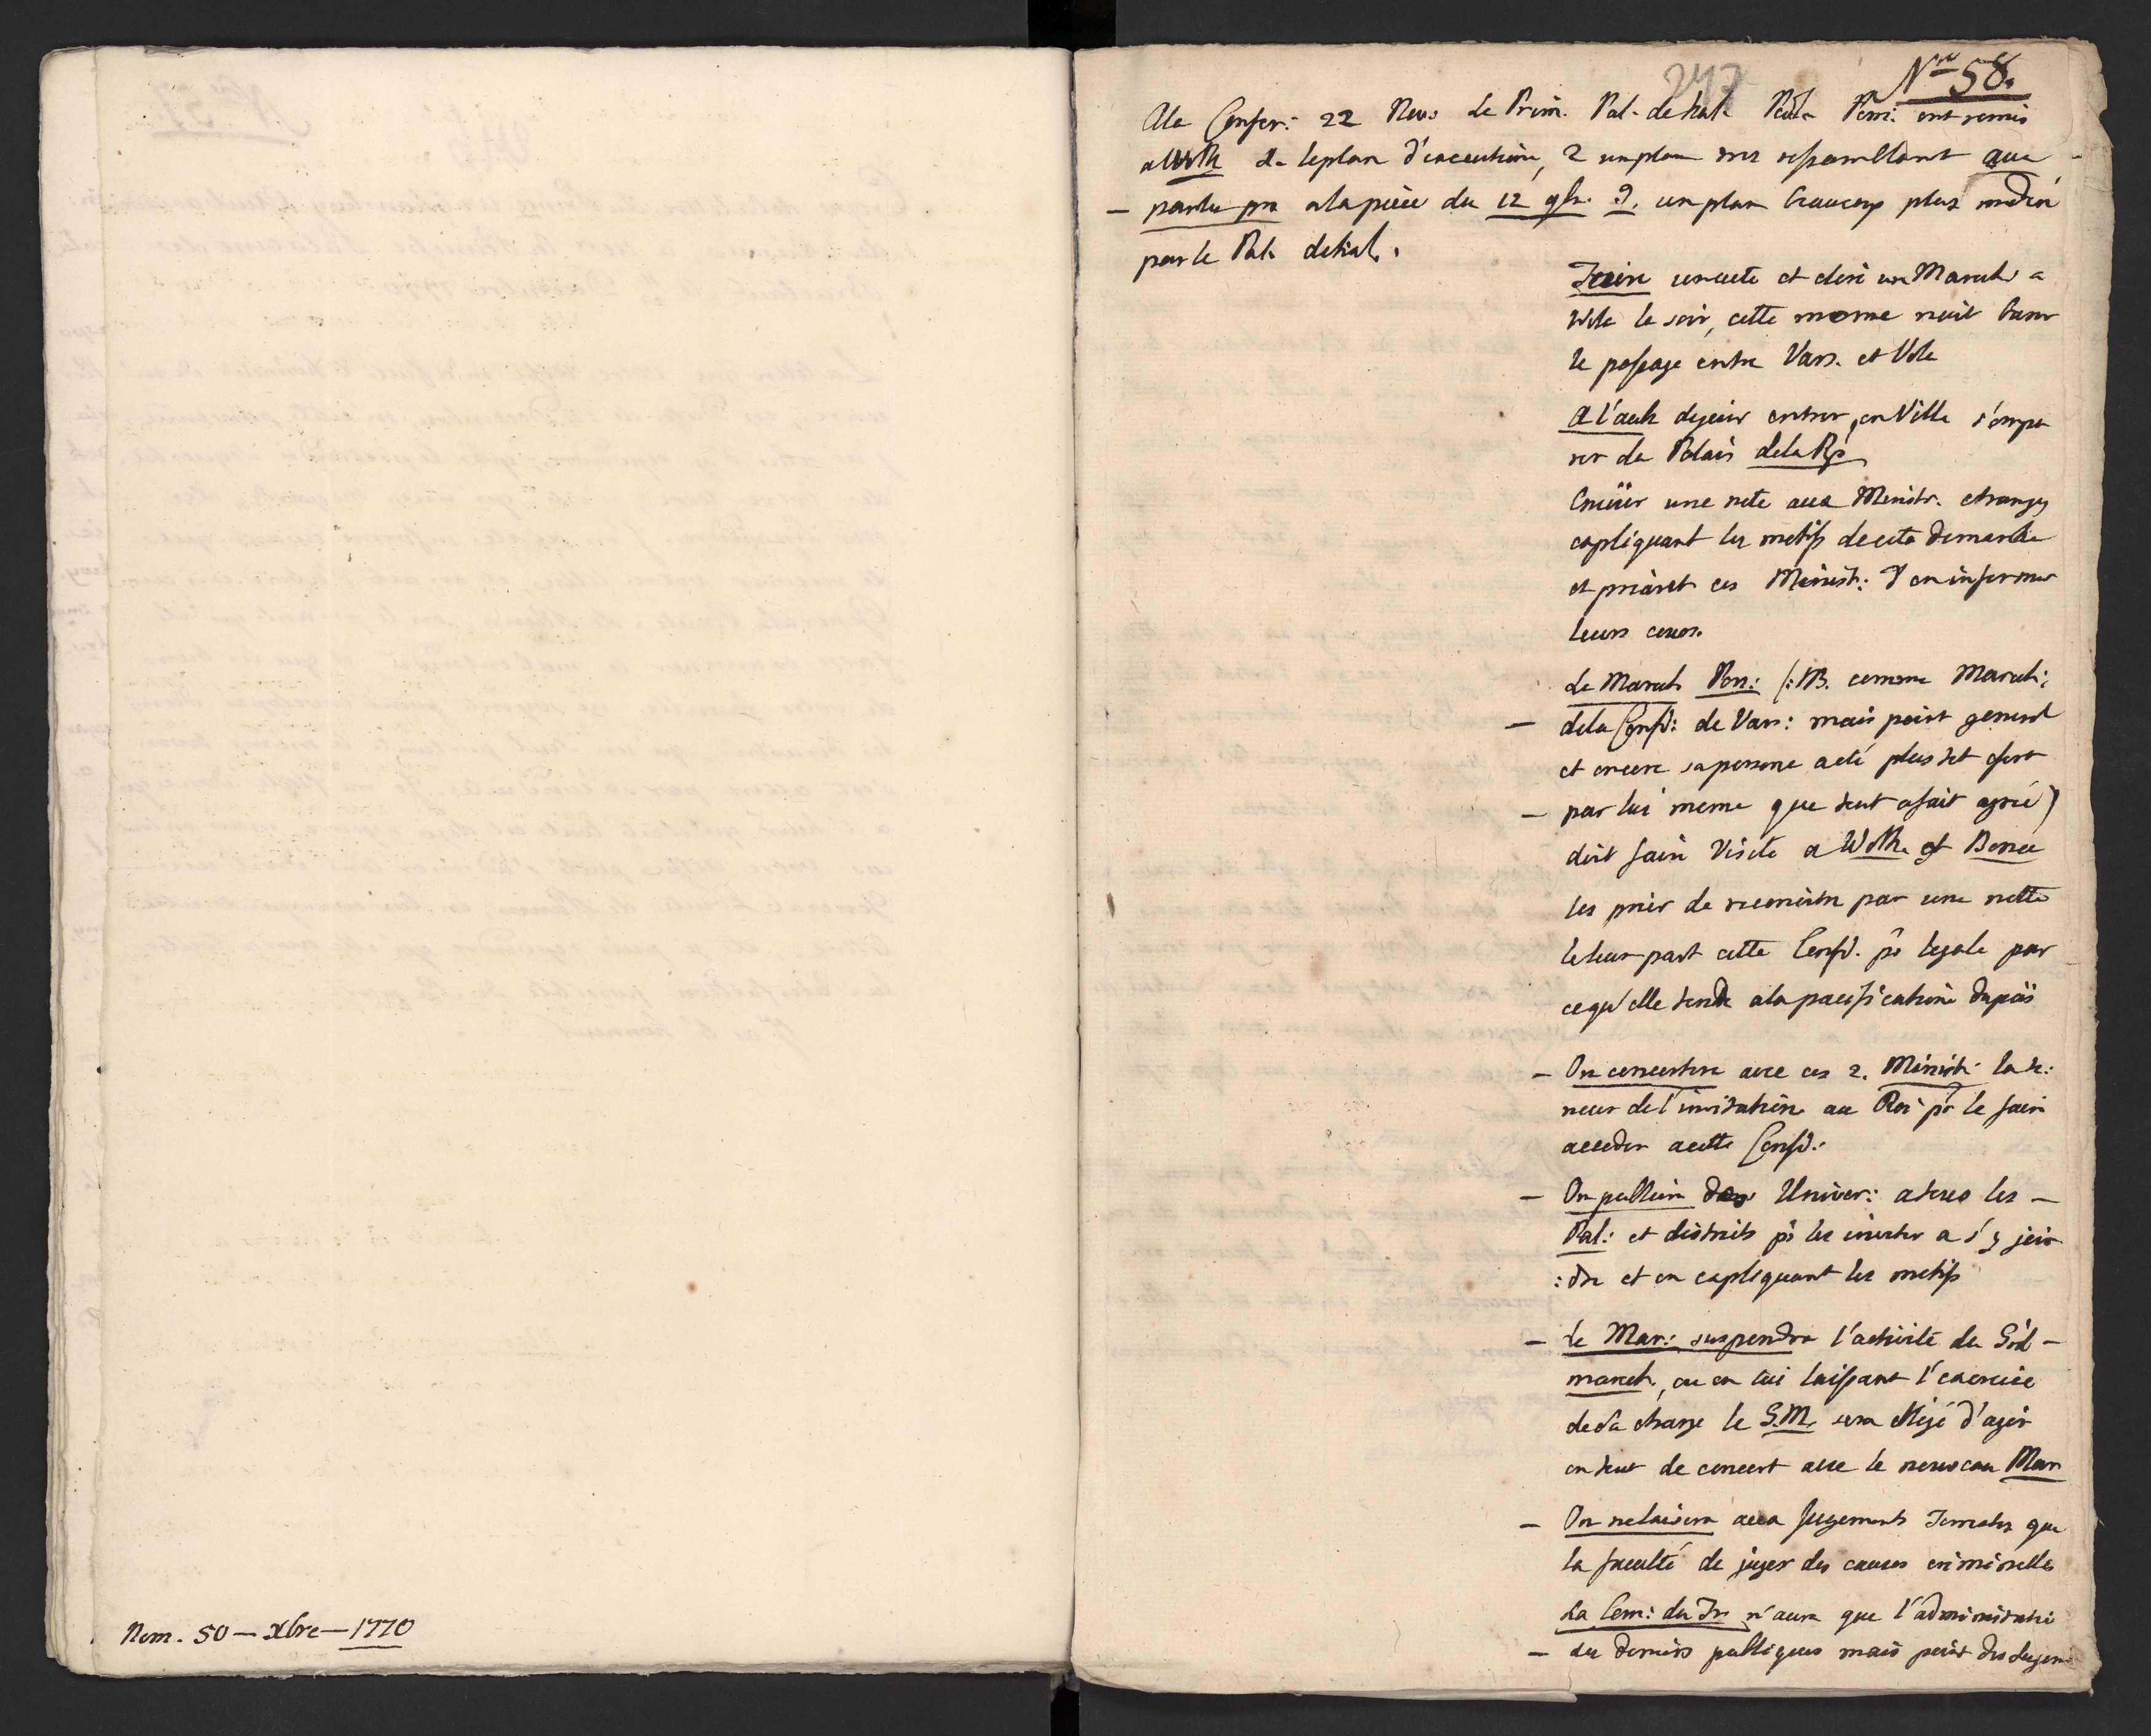 Nom. 50 — Xbre — 1770
247
Nro 58.
A la Confer: 22 Nov: le Prim. Pal. de kal. Poni: ont remis
a Wolk le plan d'execution, 2 un plan ressemblant aux
— a la piéce du 12 9br. 3. un plan beaucoup plus
par le Pal. de kal.
et eliré un Marech a
Vola le soir, cette meme nuit
le passage entre Vars. et Vola
A l'aub du jour entrer en Ville s'empa
rer du Palais de la Rep
Envoïer une note aux Ministr. etrangs
expliquant les motifs de cette demarche
et priant ces Minist: d'en informer
leurs cours.
Le Marech Pon: (: NB. comme Marech:
— de la Confd: de Vars: mais point general
et encore sa personne a eté plus tot
— par lui meme que tout a fait agrée)
doit faire Visite a Wolk. et Benoi
les prier de reconoitre par une notte
de leur part cette Confd. pr legale par
ce qu'elle tende a la pacification du païs
— On concertera avec ces 2. Minist: la te:
neur de l'invitation au Roi pr le faire
acceder a cette Confd:
— On publiera des Univer: a tous les —
Pal: et districts pr les inviter a s'y join
:dre et en expliquant les motifs
— Le Mar: suspendra l'activité du Gd —
marech, ou en lui laissant l'exercice
de sa charge le G.M. sera obligé d'agir
en tout de concert avec le nouveau Mar
— On ne laissera aux Jugements que
la faculté de juger des causes criminelles
La Com: du Tr n'aura que l'administrati
— des deniers publiques mais point des Jugem